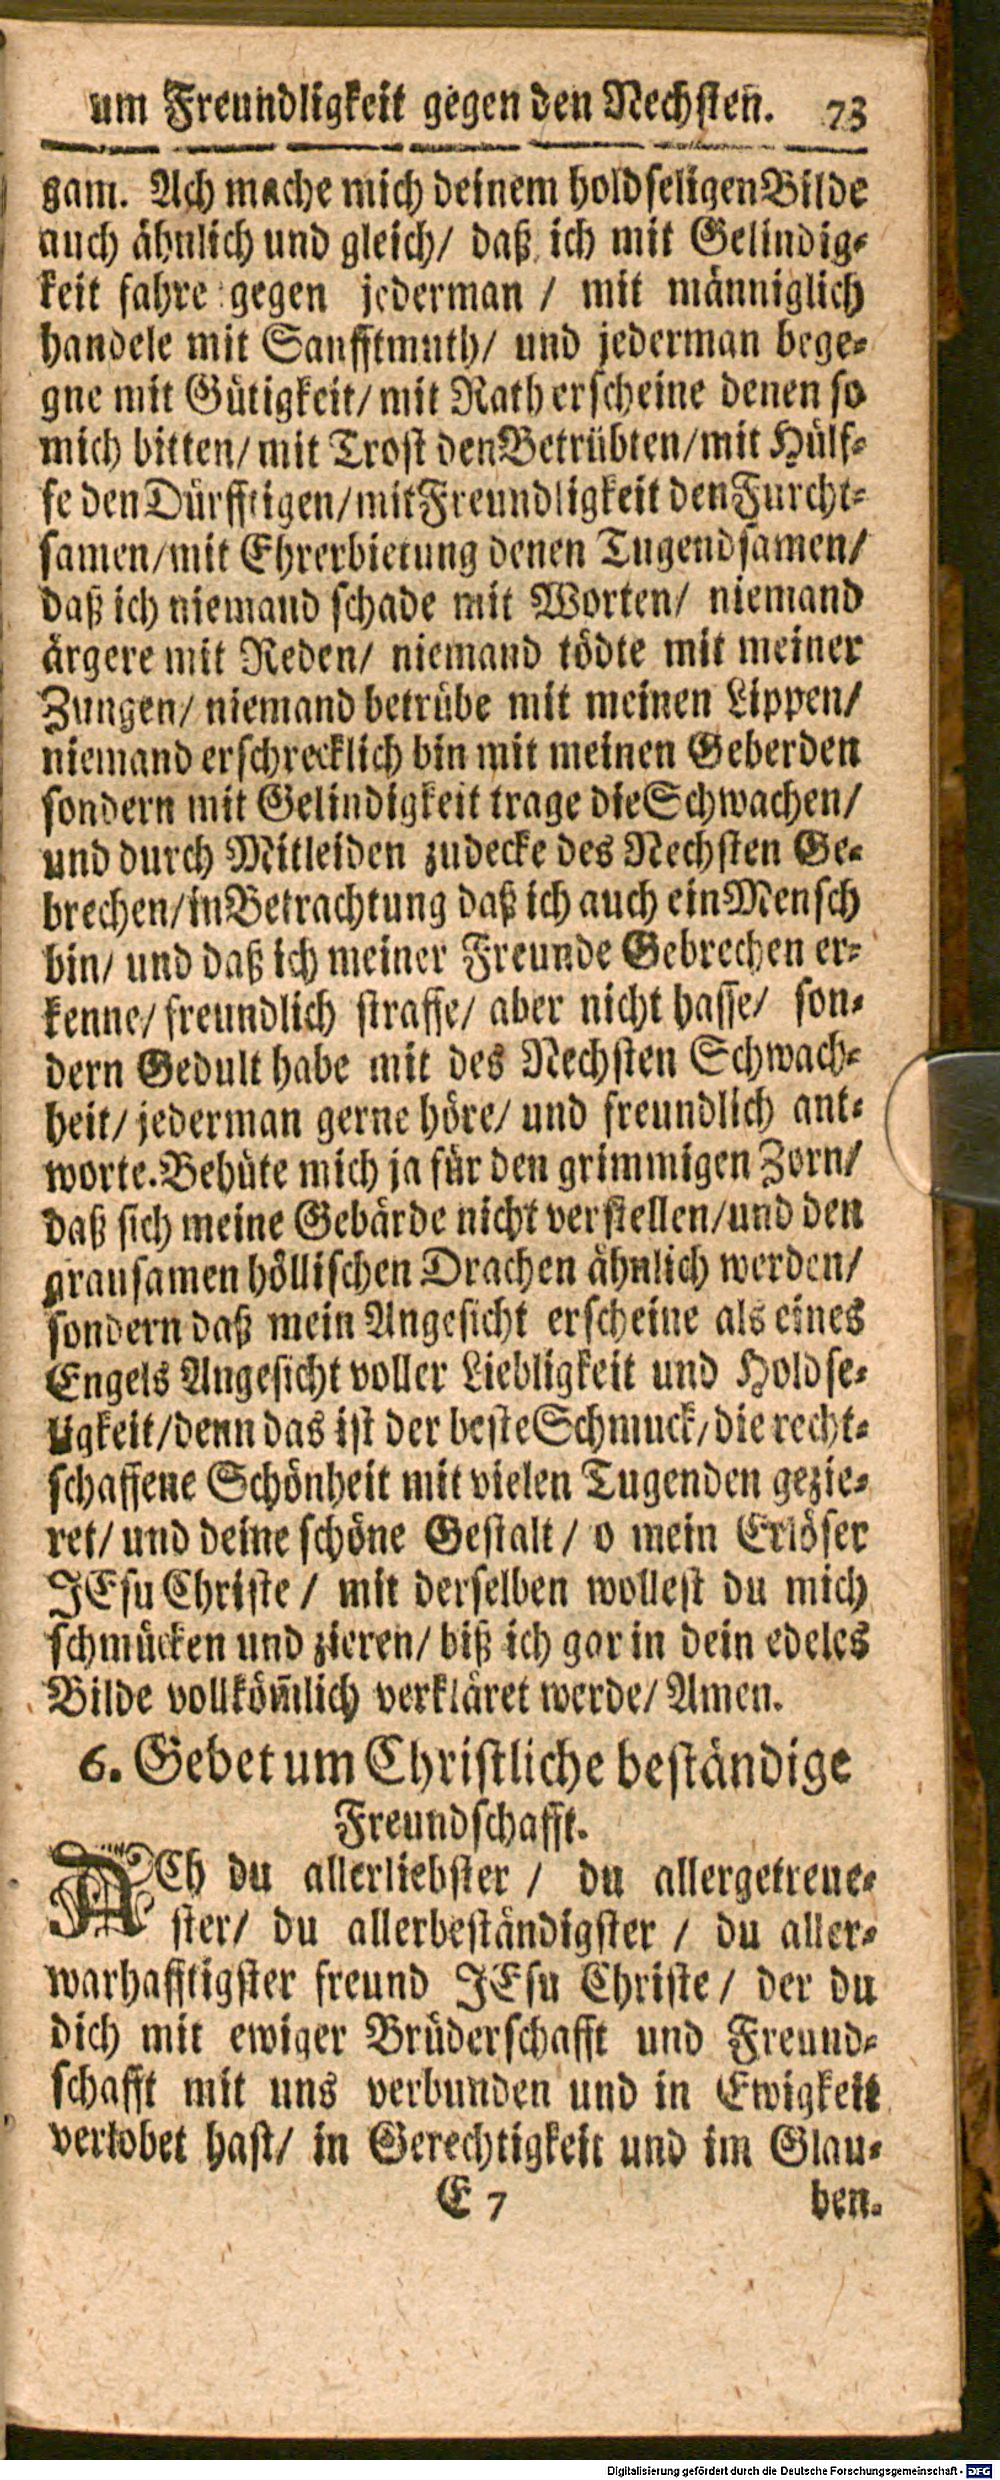 um Freundligkeit gegen den Nechsten. 73
sam. Ach mache mich deinem holdseligen Bilde
auch ähnlich und gleich/ daß ich mit Gelindig-
keit fahre gegen jederman / mit männiglich
handele mit Sanfftmuth/ und jederman bege-
gne mit Gütigkeit/ mit Rath erscheine denen so
mich bitten/ mit Trost den Betrübten/ mit Hülf-
fe den Dürfftigen/ mit Freundligkeit den Furcht-
samen/ mit Ehrerbietung denen Tugendsamen/
daß ich niemand schade mit Worten/ niemand
ärgere mit Reden/ niemand tödte mit meiner
Zungen/ niemand betrübe mit meinen Lippen/
niemand erschrecklich bin mit meinen Geberden
sondern mit Gelindigkeit trage die Schwachen/
und durch Mitleiden zudecke des Nechsten Ge-
brechen/ in Betrachtung daß ich auch ein Mensch
bin/ und daß ich meiner Freunde Gebrechen er-
kenne/ freundlich straffe/ aber nicht hasse/ son-
dern Gedult habe mit des Nechsten Schwach-
heit/ jederman gerne höre/ und freundlich ant-
worte. Behüte mich ja für den grimmigen Zorn/
daß sich meine Gebärde nicht verstellen/ und den
grausamen höllischen Drachen ähnlich werden/
sondern daß mein Angesicht erscheine als eines
Engels Angesicht voller Liebligkeit und Holdse-
ligkeit/ denn das ist der beste Schmuck/ die recht-
schaffene Schönheit mit vielen Tugenden gezie-
ret/ und deine schöne Gestalt / o mein Erlöser
JEsu Christe / mit derselben wollest du mich
schmücken und zieren/ biß ich gar in dein edeles
Bilde vollköm̄lich verkläret werde/ Amen.
6. Gebet um Christliche beständige
Freundschafft.
ACh du allerliebster / du allergetreue-
ster/ du allerbeständigster / du aller-
warhafftigster freund JEsu Christe / der du
dich mit ewiger Brüderschafft und Freund-
schafft mit uns verbunden und in Ewigkeit
verlobet hast/ in Gerechtigkeit und im Glau-
E 7 ben.
Digitalisierung gefördert durch die Deutsche Forschungsgemeinschaft - DFG